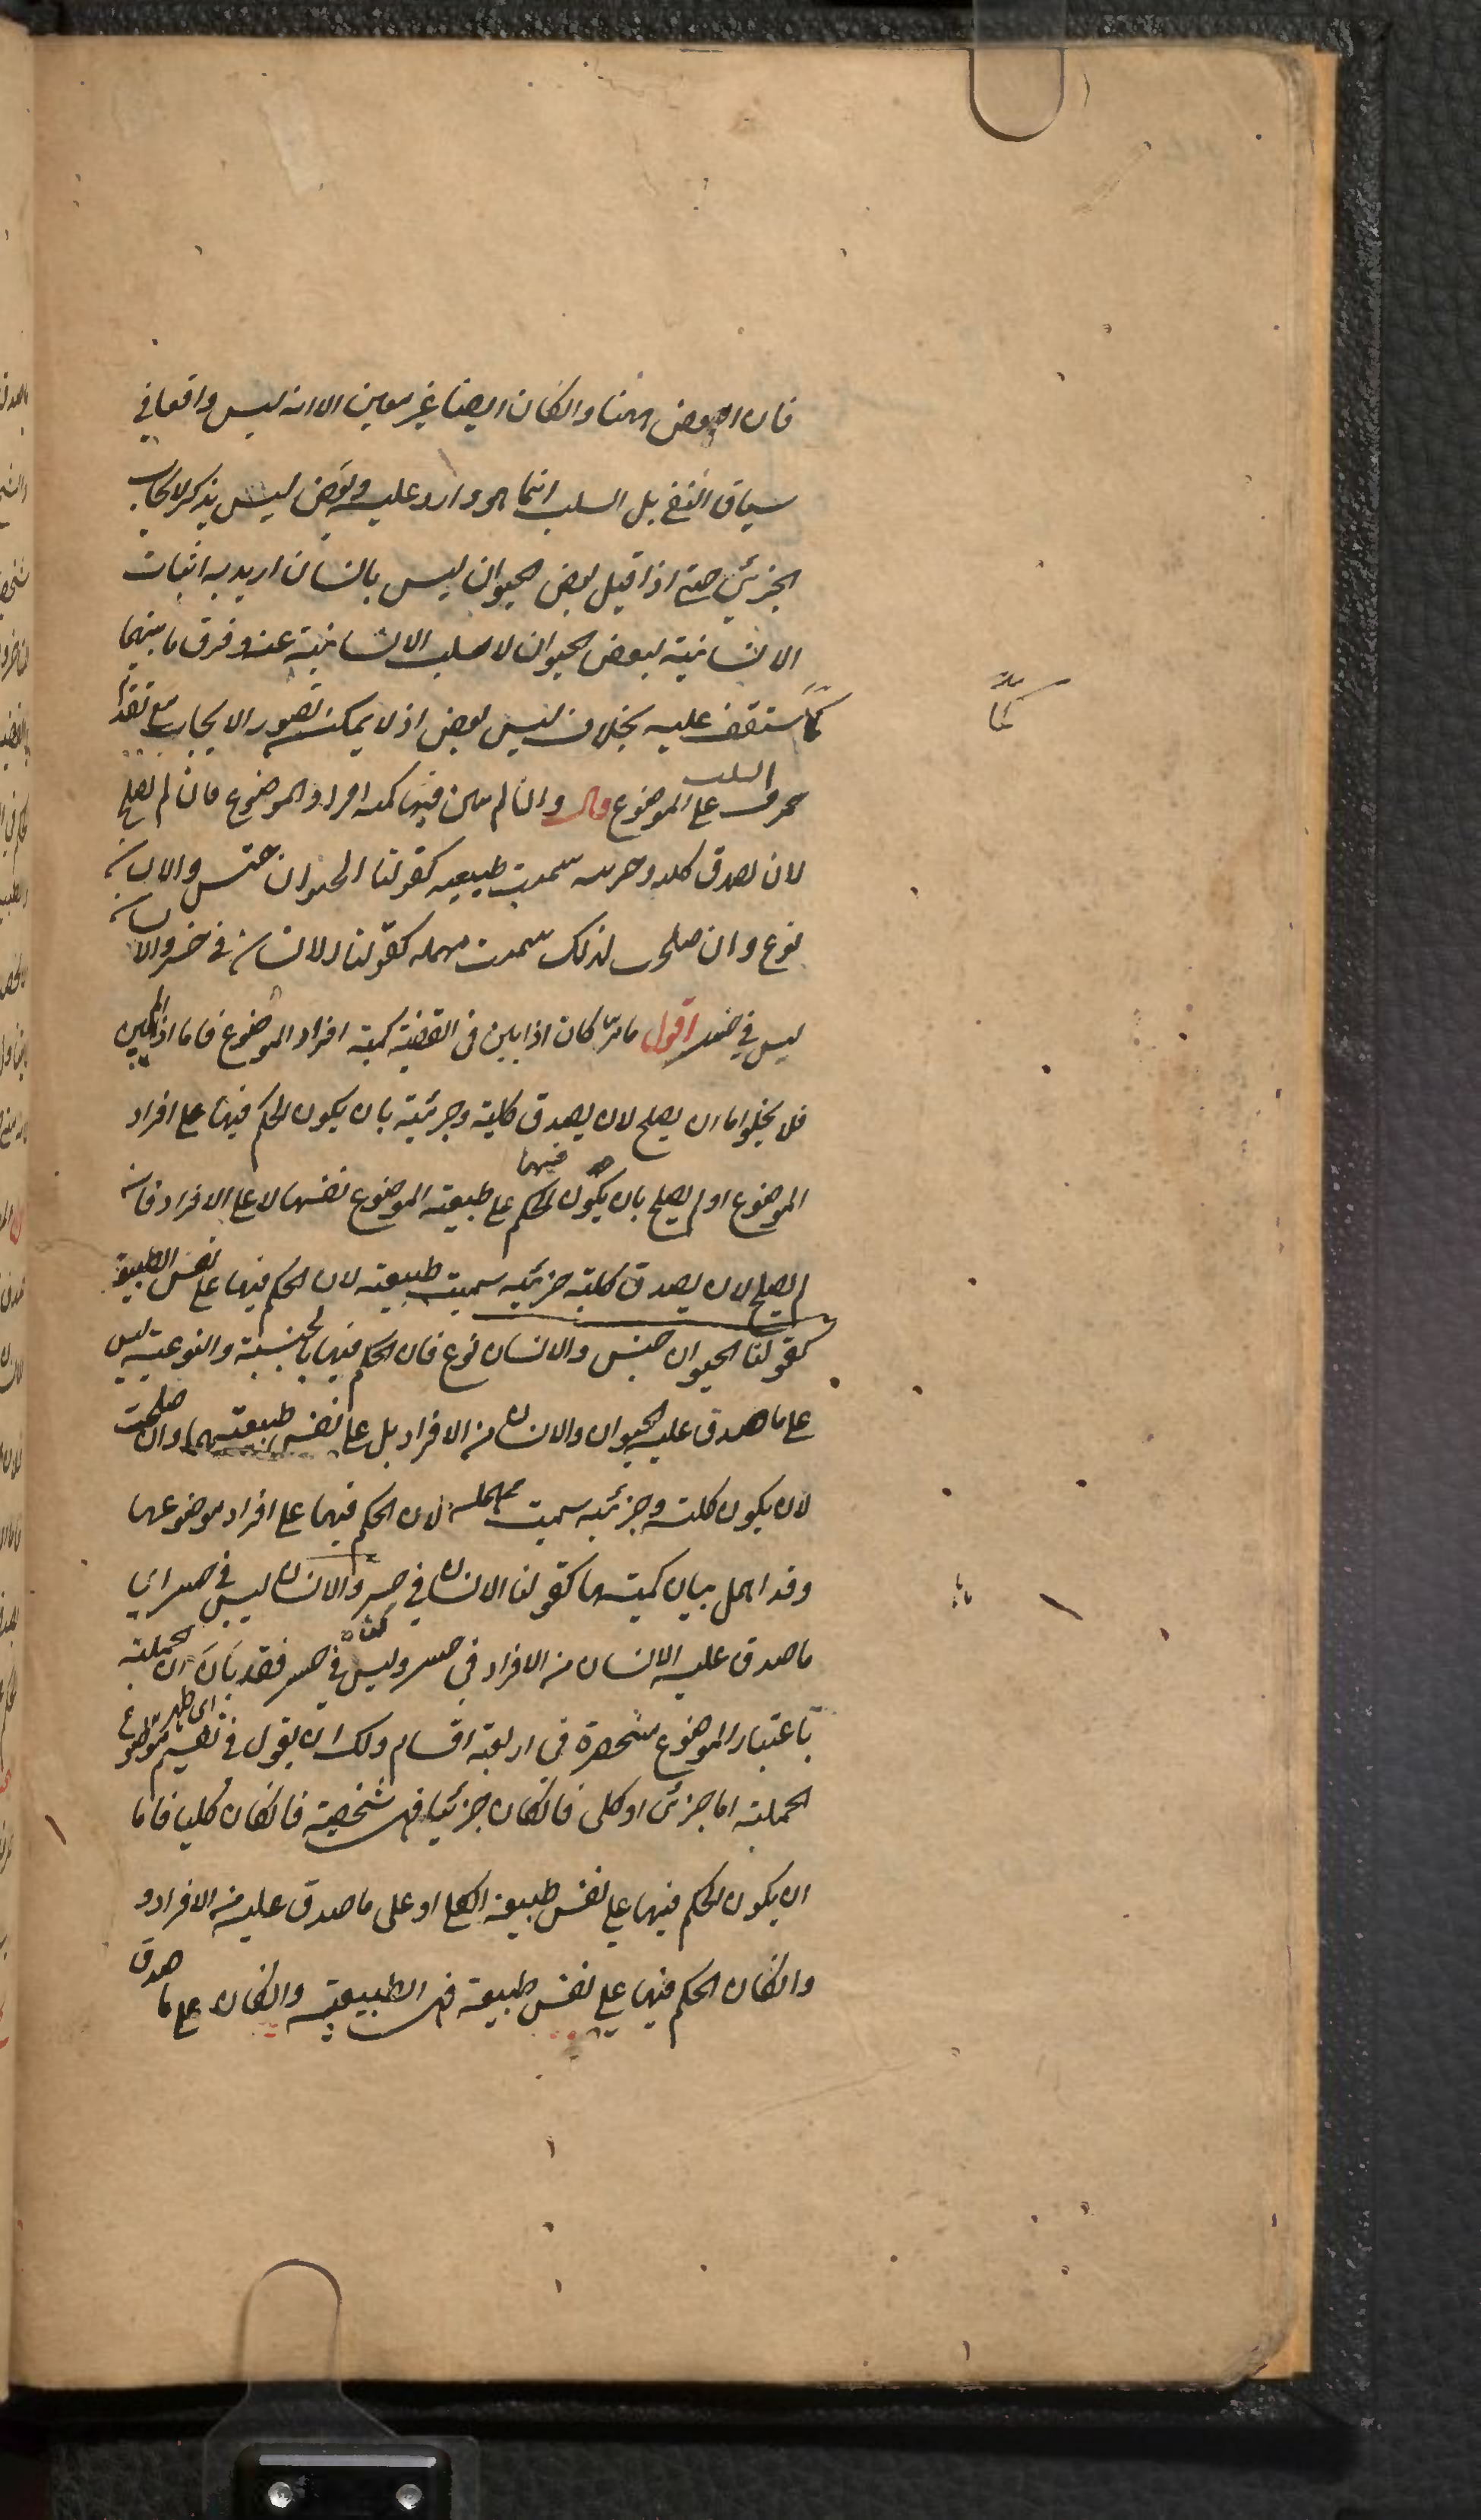 فان البعض ههنا وانكان ايضا غير معين الا انه ليس واقعا في
سياق النفي بل السلب انما هو وارد عليه وبعض ليس يذكر للايجاب
الجزئي حتى اذا قيل بعض الحيوان ليس بانسان اريد به اثبات
الانسانية لبعض الحيوان لا سلب الانسانية عنه وفرق ما بينهما
كما ستقف عليه بخلاف ليس بعض اذ لا يمكن تصور الايجاب مع تقدم
حرف السلب على الموضوع قال وان لم يبين فيها كمية افراد الموضوع فان لم تصلح
لان تصدق كلية وجزئية سميت طبيعية كقولنا الحيوان جنس والانسان
نوع وان صلحت لذلك سميت مهملة كقولنا الانسان في خسر والانسان
ليس في خسر اقول ما مر كان اذا بين في القضية كمية افراد الموضوع فاما اذا لم يبين
فلا يخلوا اما ان يصلح لان يصدق كلية وجزئية بان يكون الحكم فيها على افراد
الموضوع او لم يصلح بان يكون الحكم فيها على طبيعة الموضوع نفسها لا على الافراد فان
لم يصلح لان يصدق كلية جزئية سميت طبيعية لان الحكم فيها على نفس الطبيعة
كقولنا الحيوان جنس والانسان نوع فان الحكم فيها بالجنسية والنوعية ليس
على ما صدق عليه الحيوان والانسان من الافراد بل على نفس طبيعتهما وان صلحت
لان يكون كلية وجزئية سميت مهملة لان الحكم فيها على افراد موضوعها
وقد اهمل بيان كميتها كقولنا الانسان في خسر والانسان ليس في خسر اي
ما صدق عليه الانسان من الافراد في خسر وليس في خسر فقد بان ان الحملية
باعتبار الموضوع منحصرة في اربعة اقسام ولك ان يقول في تقسيم موضوع
الحملية اما جزئي او كلي فانكان جزئيا فهي شخصية فانكان كليا فاما
ان يكون الحكم فيها على نفس طبيعة الكلي او على ما صدق عليه من الافراد و
وانكان الحكم فيها على نفس طبيعة فهي الطبيعية وانكان على ما صدق
كما